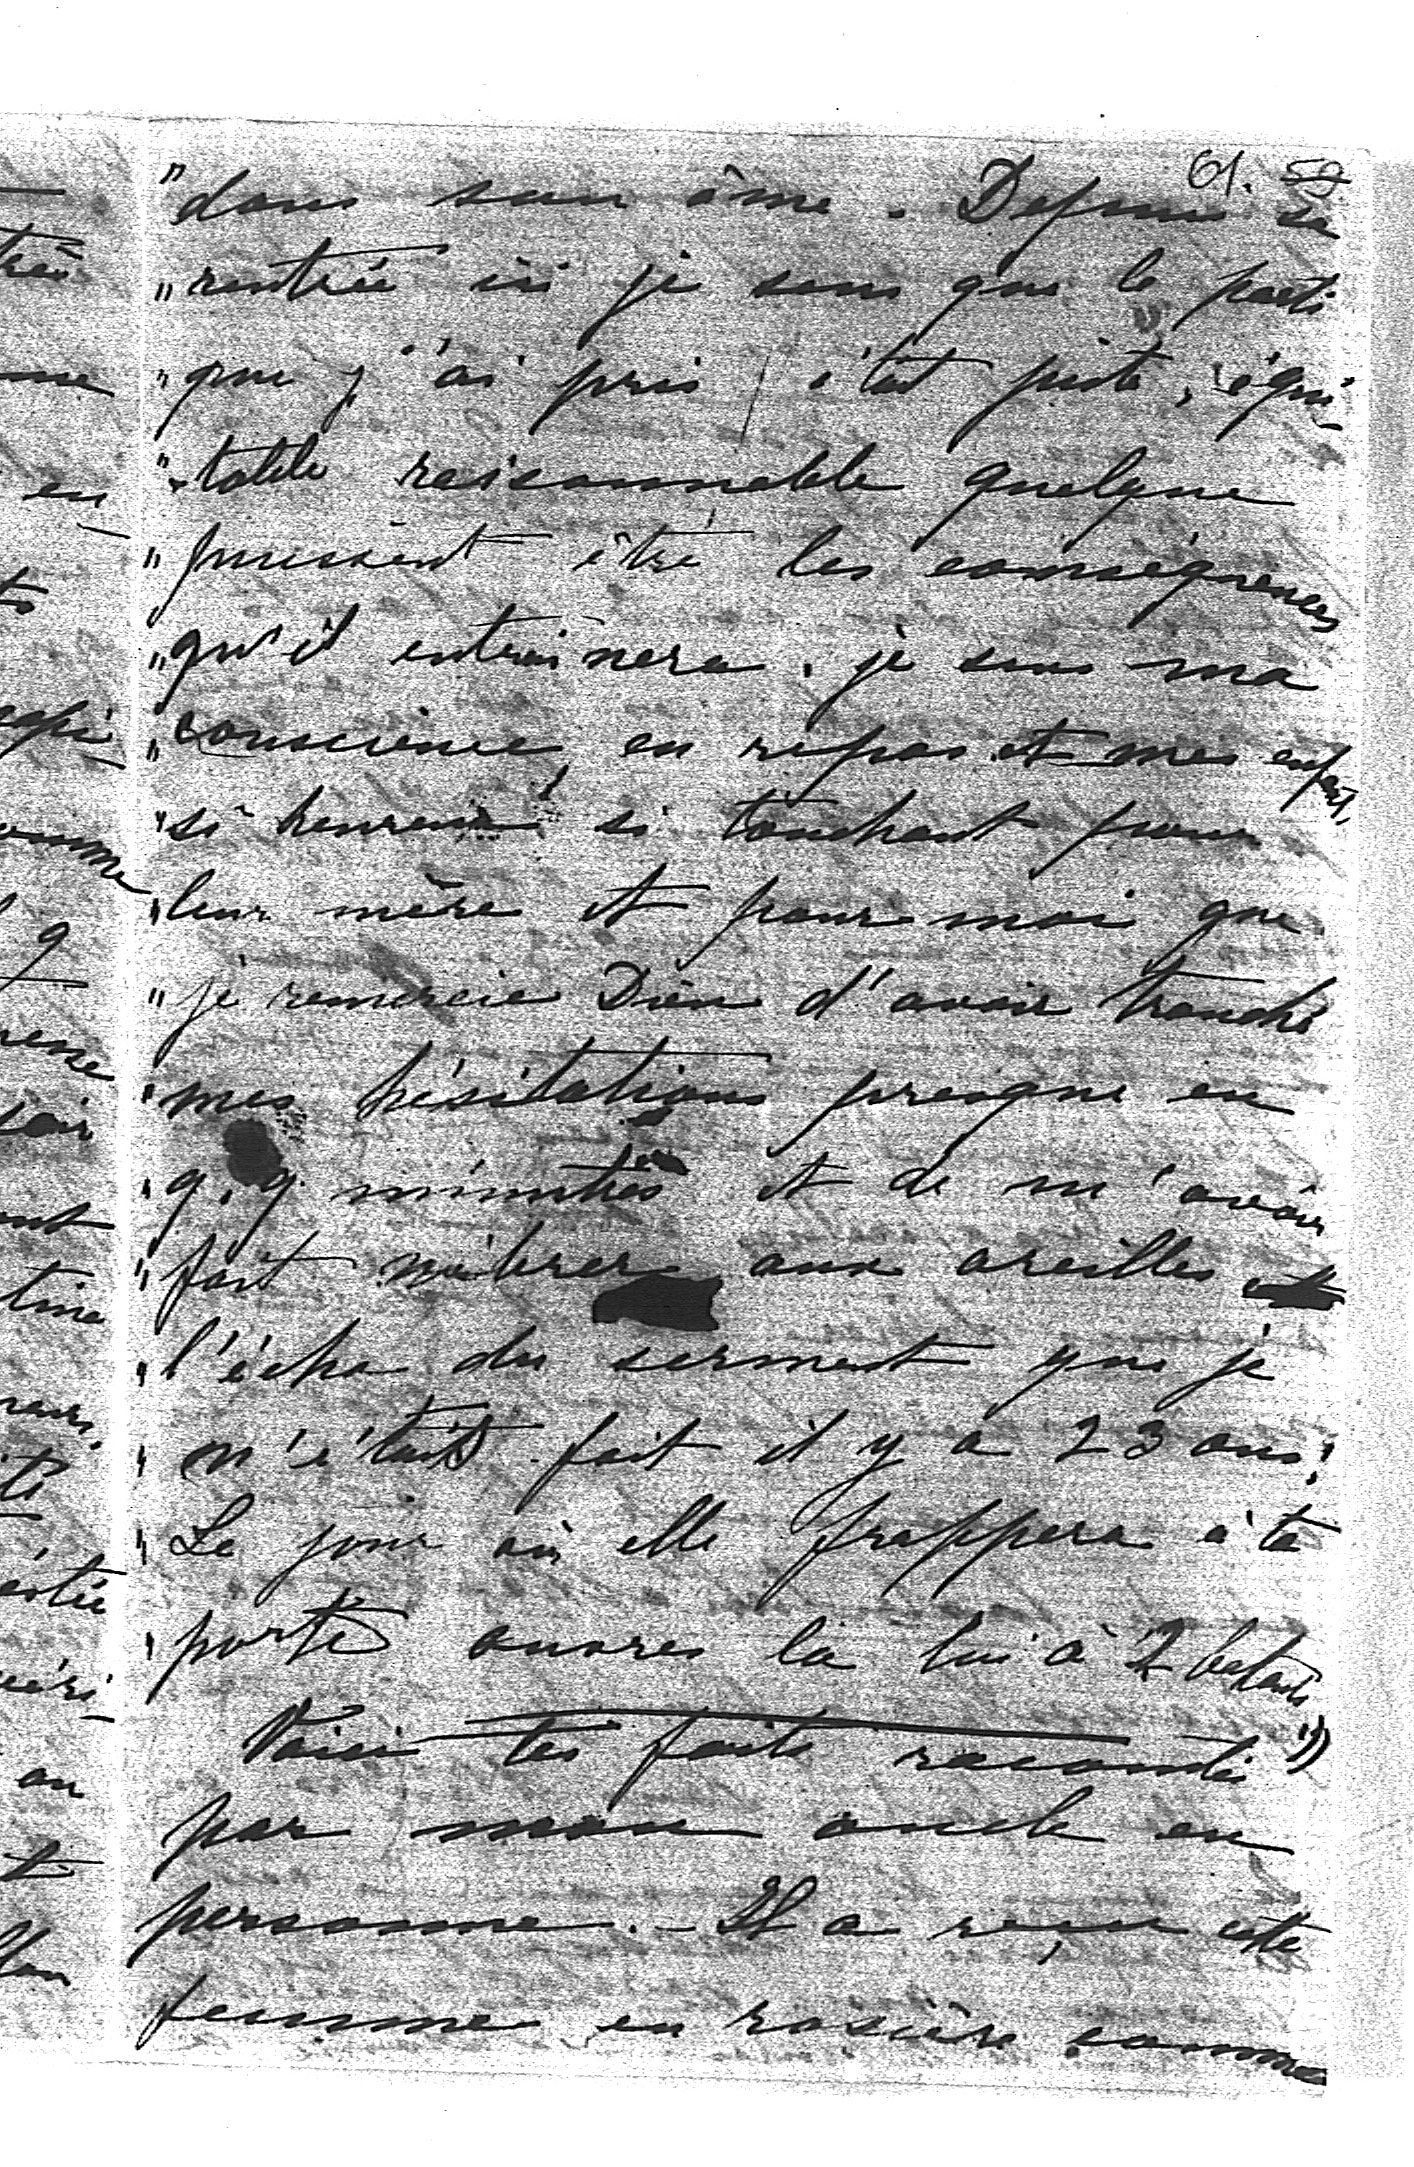 61. 59
"dans son âme. Depuis sa
"rentrée ici je sens que le parti
"que j'ai pris était juste, équi-
"-table raisonnable quelque
"puissent être les conséquences
"qu'il entrainera. je sens ma
"conscience en repos et mes enfants
"si heureux si touchant pour
"leur mère et pour moi que
"je remercie Dieu d'avoir tranché
"mes hésitations presque en
"q.q. minutes et de m'avoir
"fait vibrer aux oreilles
"l'écho du serment que je
"m'étais fait il y a 23 ans!
"Le jour où elle frappera à ta
"porte ouvres la lui à 2 battants"
Voici les faits racontés
par mon oncle en
personne. - Il a reçu cette
femme en rosière comme
très
en
omme
q
tine
au